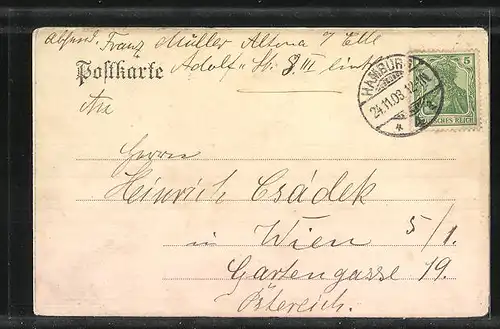 Absend. Franz Müller Altona / Elbe
Adolf - Str. 8 III links
Postkarte
An
HAMBURG
24.11.03.
5
DEUTSCHES REICH
Herrn
Heinrich Csádek
in Wien 5/1.
Gartengasse 19.
Östereich.